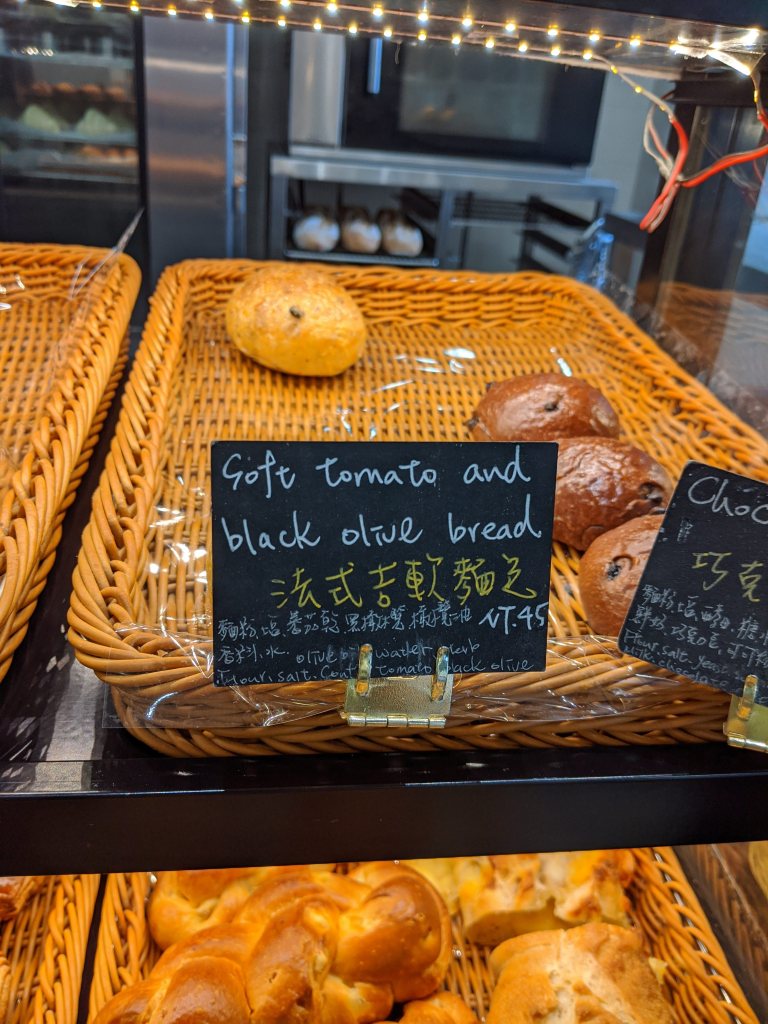 Soft tomato and
black olive bread
法式吉軟麵包
麵粉.塩.蕃茄乾.黑橄欖.橄欖油 NT.45
香料.水. olive oil water herb
flour. salt. tomato black olive
Choc
巧克
麵粉.塩.酵母.糖.水
鮮奶.巧克力豆.可可粉
Flour. salt. yeast
milk. chocolate